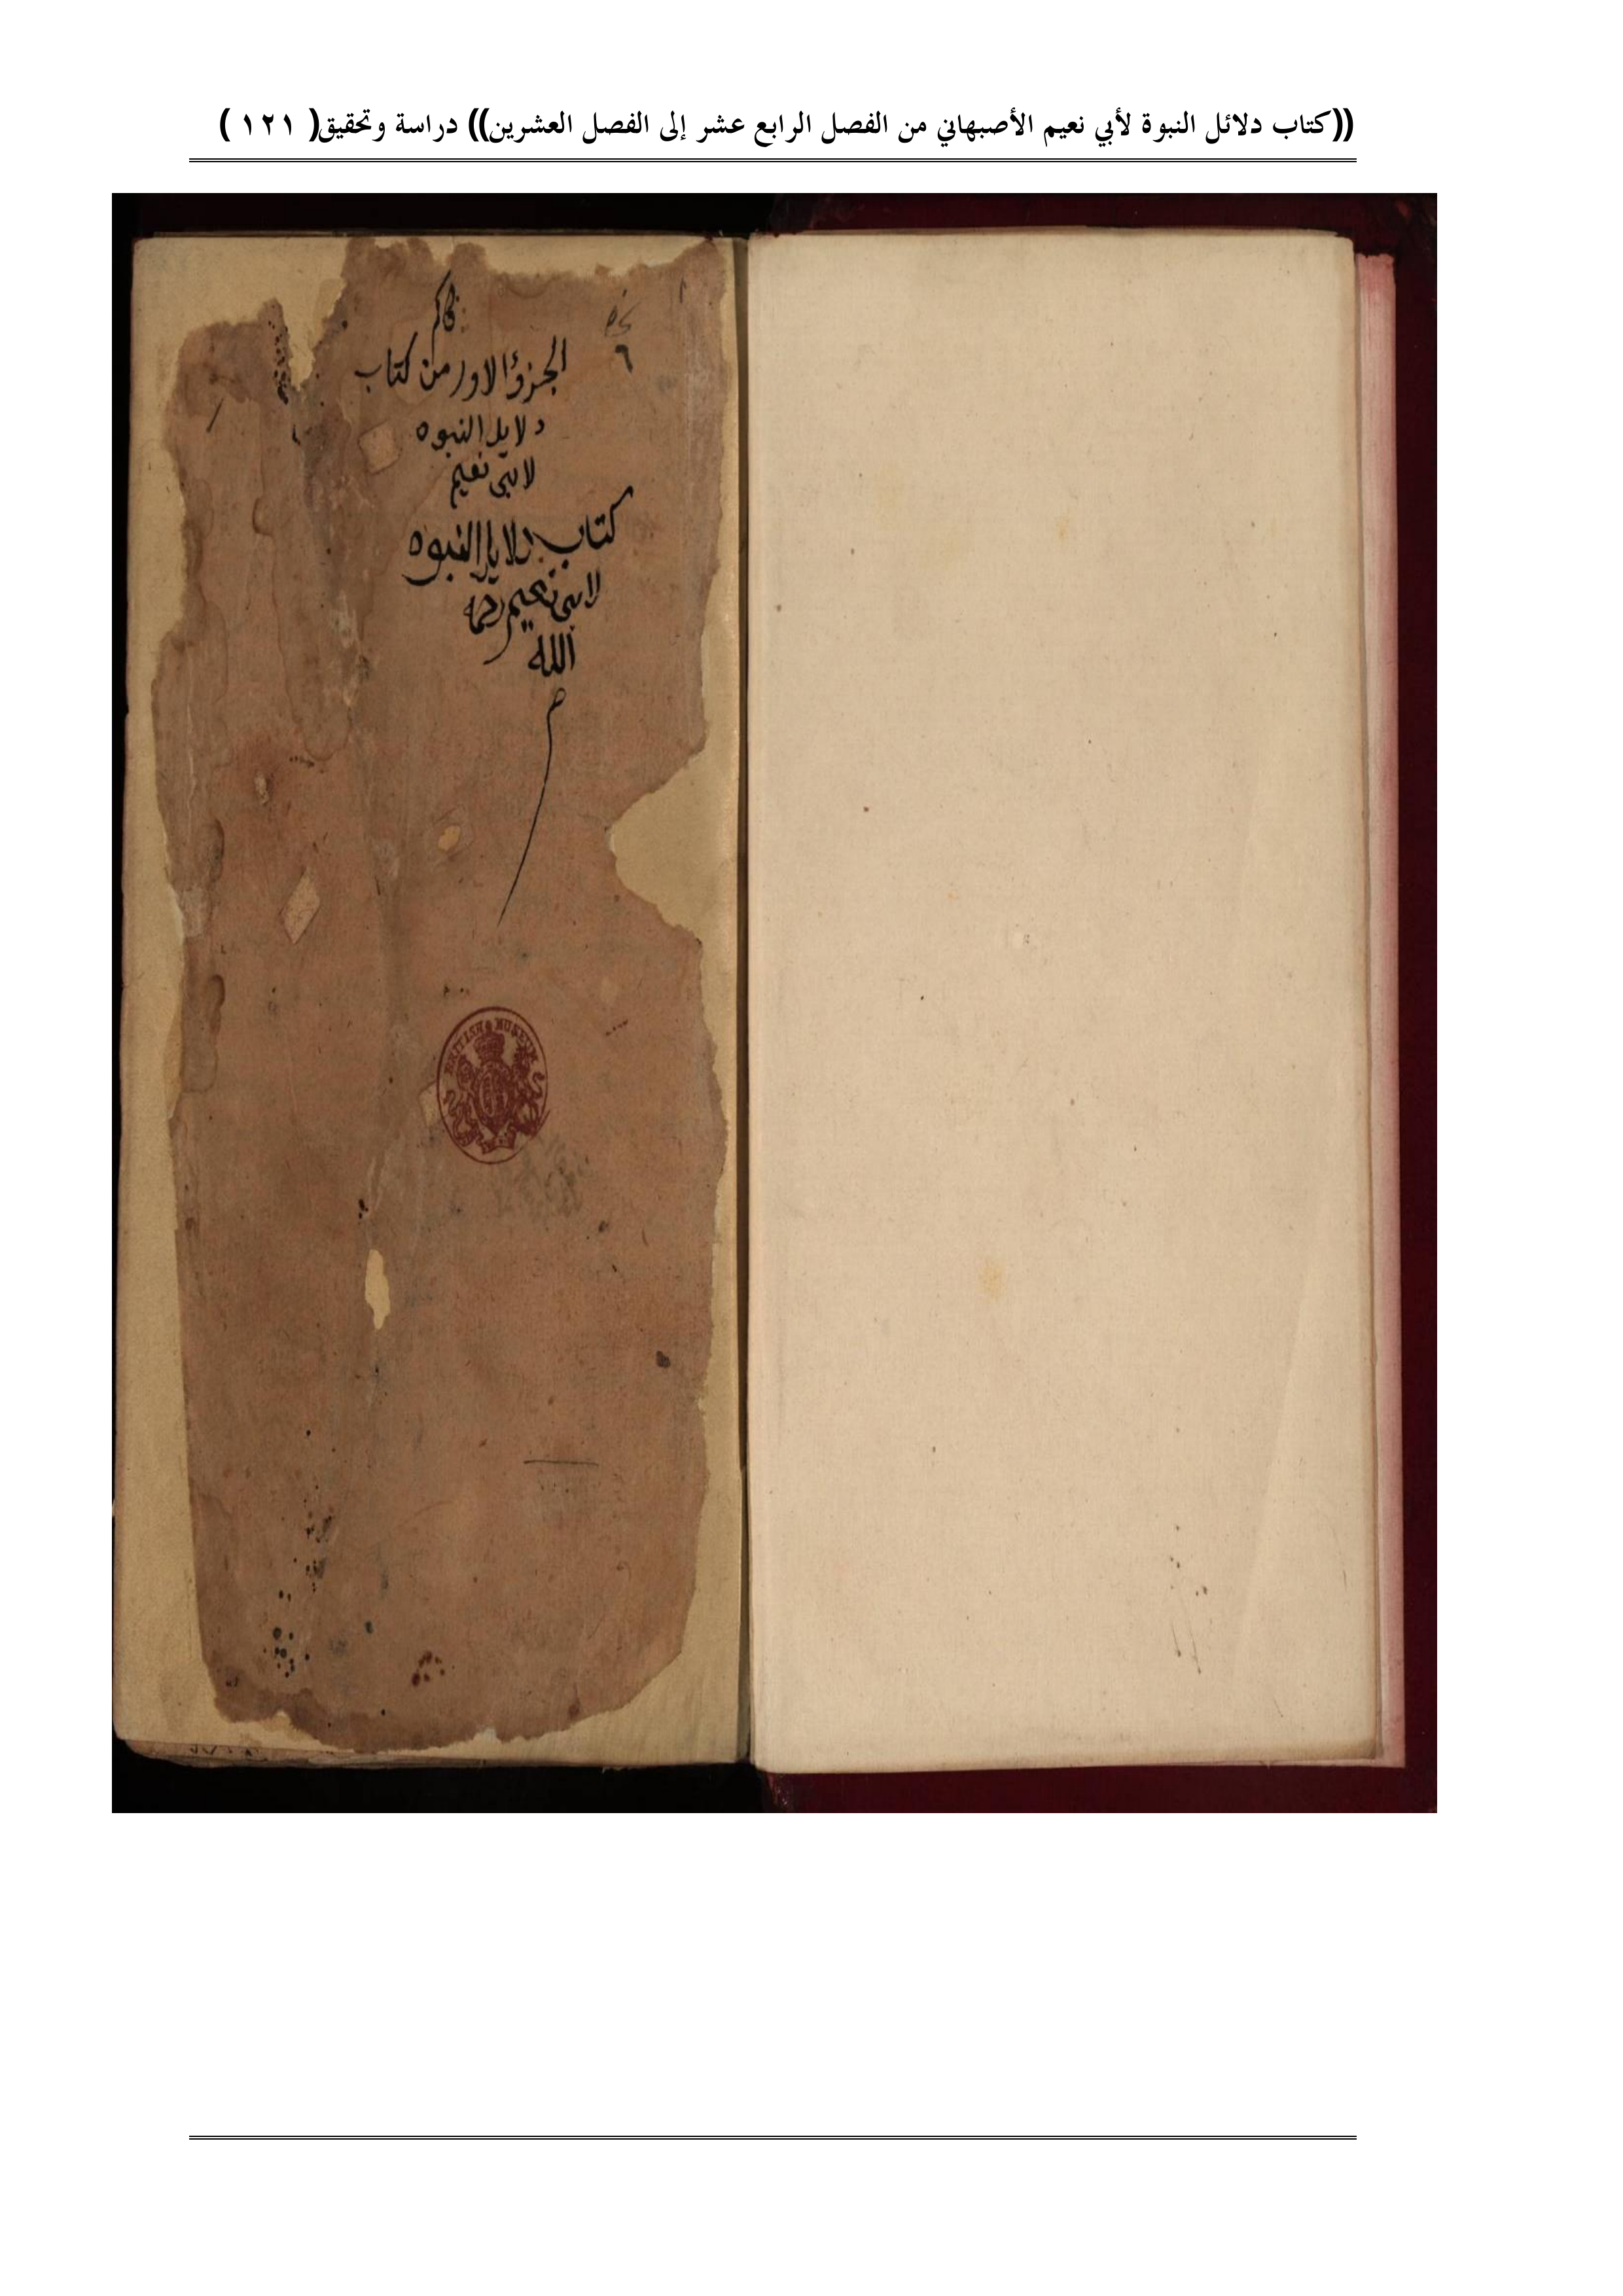 ((كتاب دلائل النبوة لأبي نعيم الأصبهاني من الفصل الرابع عشر إلى الفصل العشرين)) دراسة وتحقيق( ١٢١ )
٦
الجزؤ الاول من كتاب
دلايل النبوه
لابي نعيم
كتاب دلايل النبوه
لابي نعيم رحمه
الله
BRITISH MUSEUM